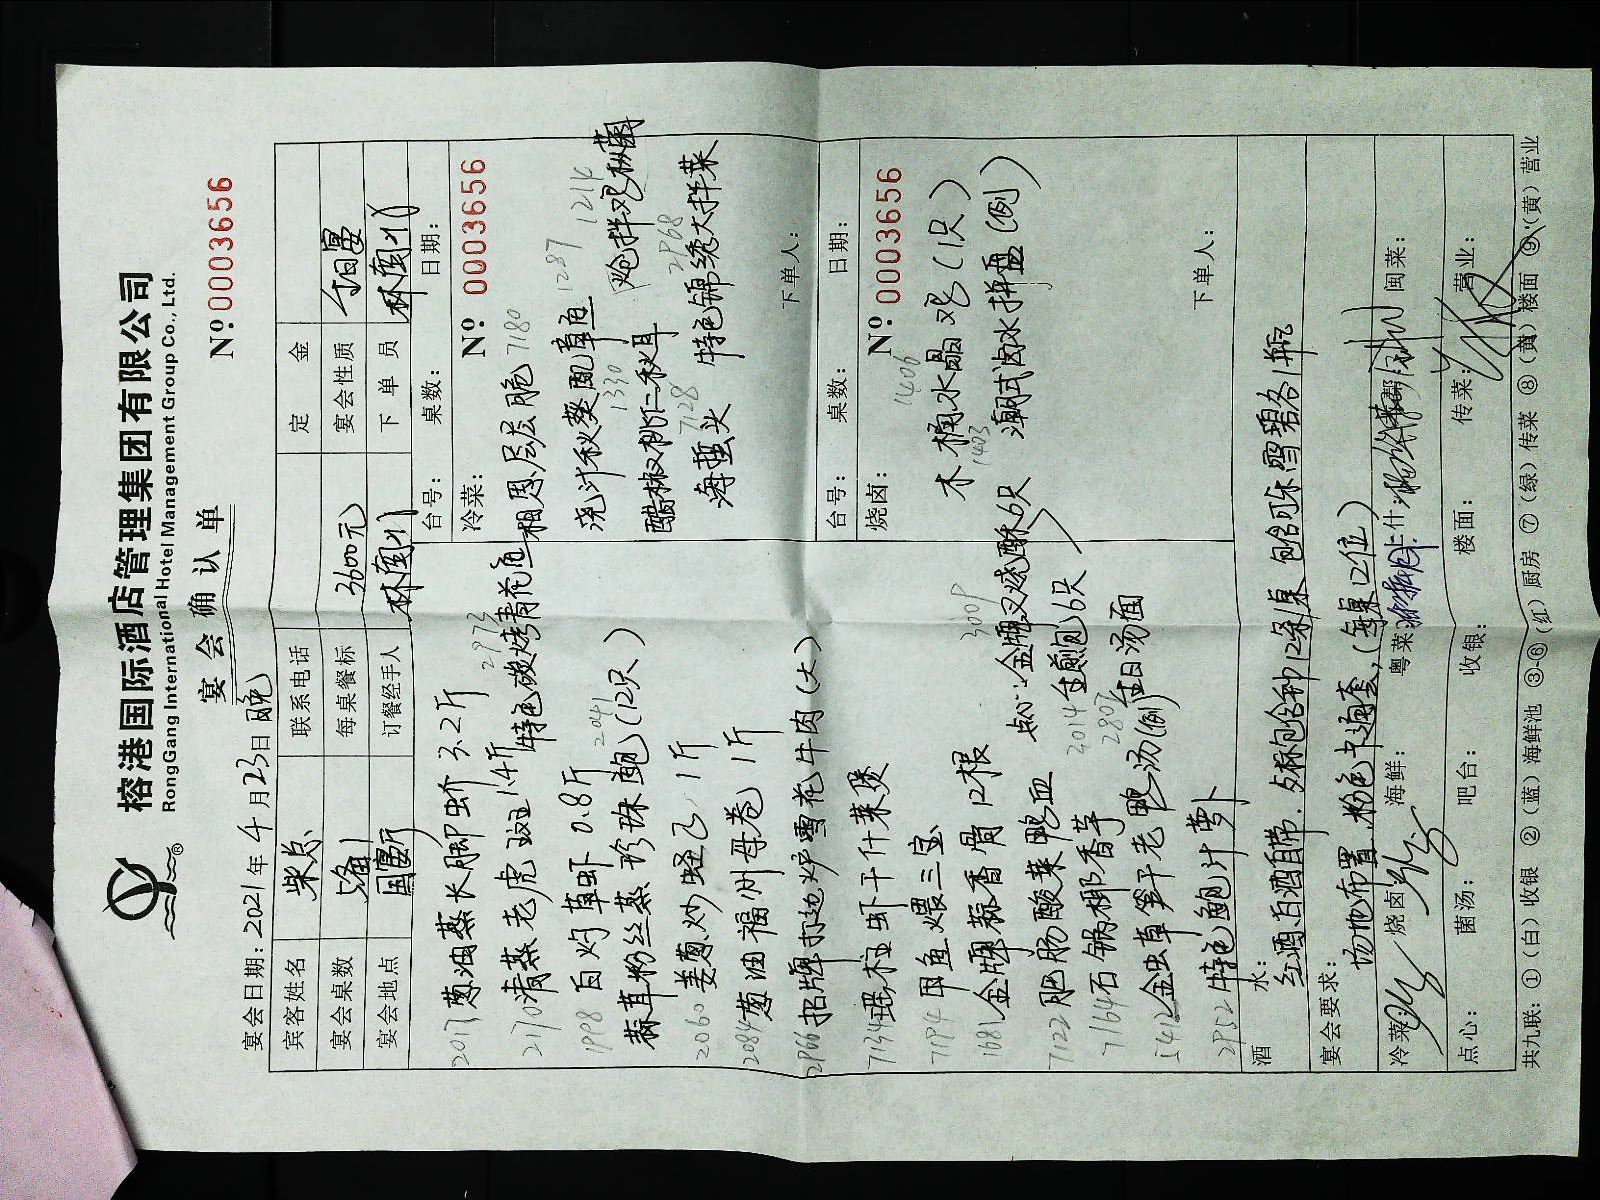 榕港国际酒店管理集团有限公司
RongGang International Hotel Management Group Co., Ltd.
®
宴会确认单
宴会日期: 2021年4月23日晚
Nº 0003656
宾客姓名 联系电话 定金
宴会桌数 1桌 每桌餐标 3600元 宴会性质
宴会地点 国宴厅 订餐经手人 下单员
台号: 桌数: 日期:
冷菜: Nº 0003656
2017 葱油蒸长胆甲虾 3.2斤
2170 清蒸老虎斑 1.4斤
1998 白灼草虾 0.8斤
2041
蒜茸粉丝蒸珍珠鲍 (12只)
2060 姜葱炒 1斤
2084 葱油福州母卷 1斤
2966 招牌打边炉雪花牛肉 (大)
7134 瑶柱虾干什菜煲
7194 甲鱼煨三宝
1681 金牌蒜香骨 12根
7122 肥肠酸菜鸭血
7164 石锅椰香芋
5412 金虫草笋干老鸭汤 (例)
2952 特色鲍汁萝卜
2973
特色碳烤青花鱼
300P
点心: 金牌叉烧酥 6只
2014 生煎包 6只
2807
汤面
相思层层脆 7180
浇汁秋葵配章鱼 1287
1330 1214
酸椒桃仁秋耳 呛拌鸡枞菌
7128 2968
海蜇头 特色锦绣大拌菜
下单人:
台号: 桌数: 日期:
烧卤: Nº 0003656
1406
木桶水晶鸡 (1只)
1403
潮式卤水拼盘 (例)
下单人:
酒水: 红酒.白酒自带.
雪碧各1瓶
宴会要求: 场地布置.粉色 (每桌12位)
冷菜: 烧卤: 海鲜: 粤菜: 什 闽菜:
点心: 菌汤: 吧台: 收银: 楼面: 传菜: 营业:
共九联: ①(白)收银 ②(蓝)海鲜池 ③-⑥(红)厨房 ⑦(绿)传菜 ⑧(黄)楼面 ⑨(黄)营业